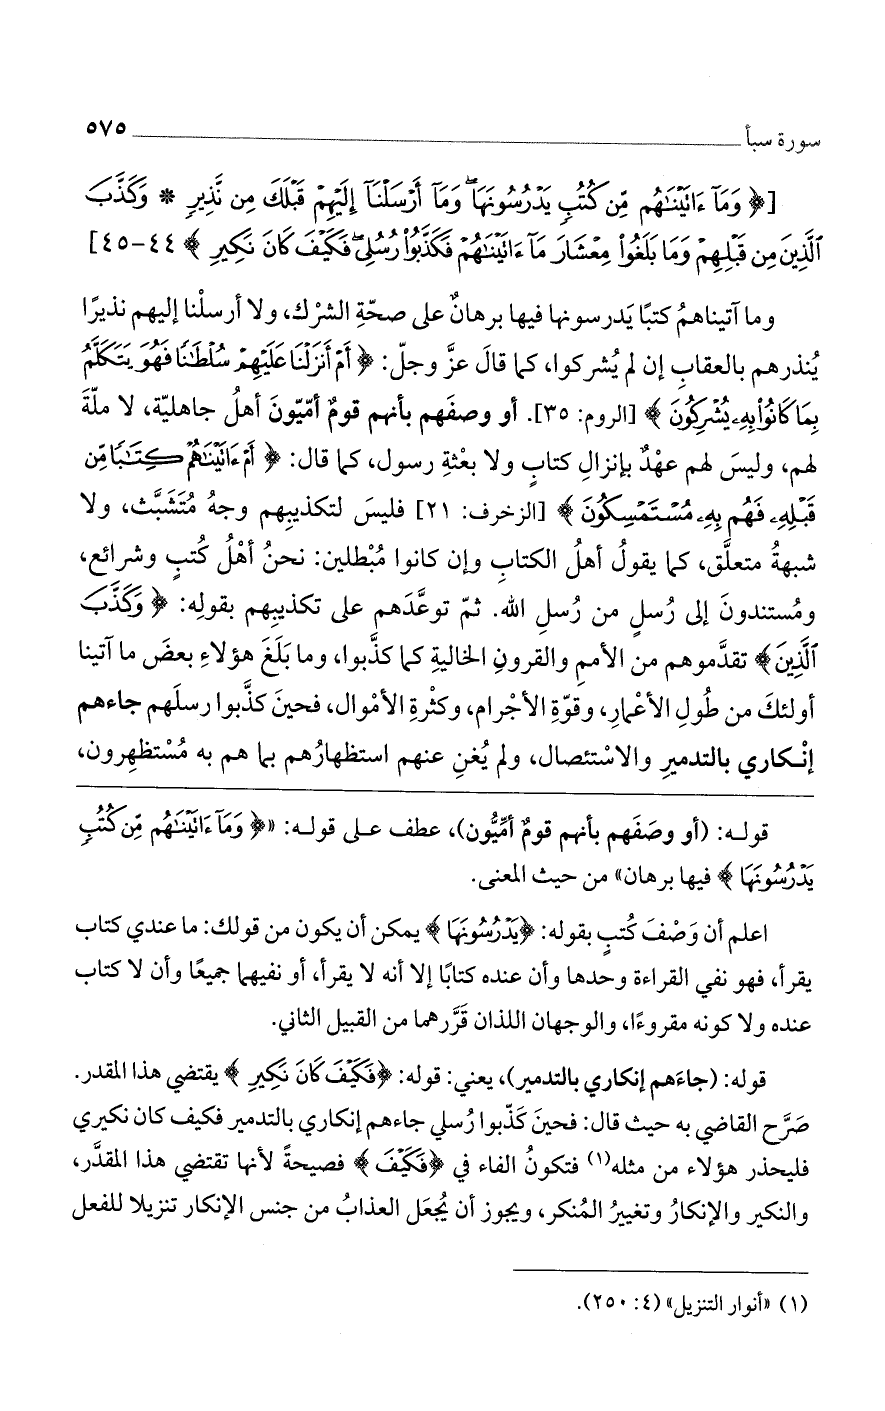 سورة سبأ ٥٧٥
[﴿ وَمَآ ءَاتَيْنَٰهُم مِّن كُتُبٍ يَدْرُسُونَهَا ۖ وَمَآ أَرْسَلْنَآ إِلَيْهِمْ قَبْلَكَ مِن نَّذِيرٍ * وَكَذَّبَ
ٱلَّذِينَ مِن قَبْلِهِمْ وَمَا بَلَغُوا۟ مِعْشَارَ مَآ ءَاتَيْنَٰهُمْ فَكَذَّبُوا۟ رُسُلِى ۖ فَكَيْفَ كَانَ نَكِيرِ ﴾ ٤٤-٤٥]
وما آتيناهمُ كتبًا يَدرسونها فيها برهانٌ على صحّةِ الشرْك، ولا أرسلْنا إليهم نذيرًا
يُنذرهم بالعقابِ إن لم يُشركوا، كما قالَ عزَّ وجلّ: ﴿ أَمْ أَنزَلْنَا عَلَيْهِمْ سُلْطَٰنًا فَهُوَ يَتَكَلَّمُ
بِمَا كَانُوا۟ بِهِۦ يُشْرِكُونَ ﴾ [الروم: ٣٥]. أو وصفَهم بأنهم قومٌ أمّيّون أهلُ جاهليّة، لا ملّةَ
لهم، وليسَ لهم عهْدٌ بإنزالِ كتابٍ ولا بعْثةِ رسول، كما قال: ﴿ أَمْ ءَاتَيْنَٰهُمْ كِتَٰبًا مِّن
قَبْلِهِۦ فَهُم بِهِۦ مُسْتَمْسِكُونَ ﴾ [الزخرف: ٢١] فليسَ لتكذيبِهم وجهُ مُتَشبَّث، ولا
شبهةُ متعلَّق، كما يقولُ أهلُ الكتابِ وإن كانوا مُبْطلين: نحنُ أهْلُ كُتبٍ وشرائع،
ومُستندونَ إلى رُسلٍ من رُسلِ الله. ثمّ توعَّدَهم على تكذيبِهم بقولِه: ﴿ وَكَذَّبَ
ٱلَّذِينَ﴾ تقدَّموهم من الأممِ والقرونِ الخاليةِ كما كذَّبوا، وما بَلَغَ هؤلاءِ بعضَ ما آتينا
أولئكَ من طُولِ الأعْمارِ، وقوّةِ الأجْرام، وكثْرةِ الأمْوال، فحينَ كذَّبوا رسلَهم جاءهم
إنْكاري بالتدميرِ والاسْتئصال، ولم يُغنِ عنهم استظهارُهم بما هم به مُسْتظهِرون،
قوله: (أو وصَفَهم بأنهم قومٌ أمِّيُّون)، عطف على قوله: «﴿ وَمَآ ءَاتَيْنَٰهُم مِّن كُتُبٍ
يَدْرُسُونَهَا ﴾ فيها برهان» من حيث المعنى.
اعلم أن وَصْفَ كُتبٍ بقوله: ﴿يَدْرُسُونَهَا ﴾ يمكن أن يكون من قولك: ما عندي كتاب
يقرأ، فهو نفي القراءة وحدها وأن عنده كتابًا إلا أنه لا يقرأ، أو نفيهما جميعًا وأن لا كتاب
عنده ولا كونه مقروءًا، والوجهان اللذان قرَّرهما من القبيل الثاني.
قوله: (جاءَهم إنكاري بالتدمير)، يعني: قوله: ﴿فَكَيْفَ كَانَ نَكِيرِ ﴾ يقتضي هذا المقدر.
صَرَّح القاضي به حيث قال: فحينَ كذّبوا رُسلي جاءهم إنكاري بالتدمير فكيف كان نكيري
فليحذر هؤلاء من مثله(١) فتكونُ الفاء في ﴿فَكَيْفَ ﴾ فصيحةً لأنها تقتضي هذا المقدَّر،
والنكير والإنكارُ وتغييرُ المُنكر، ويجوز أن يُجعَل العذابُ من جنس الإنكار تنزيلا للفعل
(١) «أنوار التنزيل» (٤: ٢٥٠).